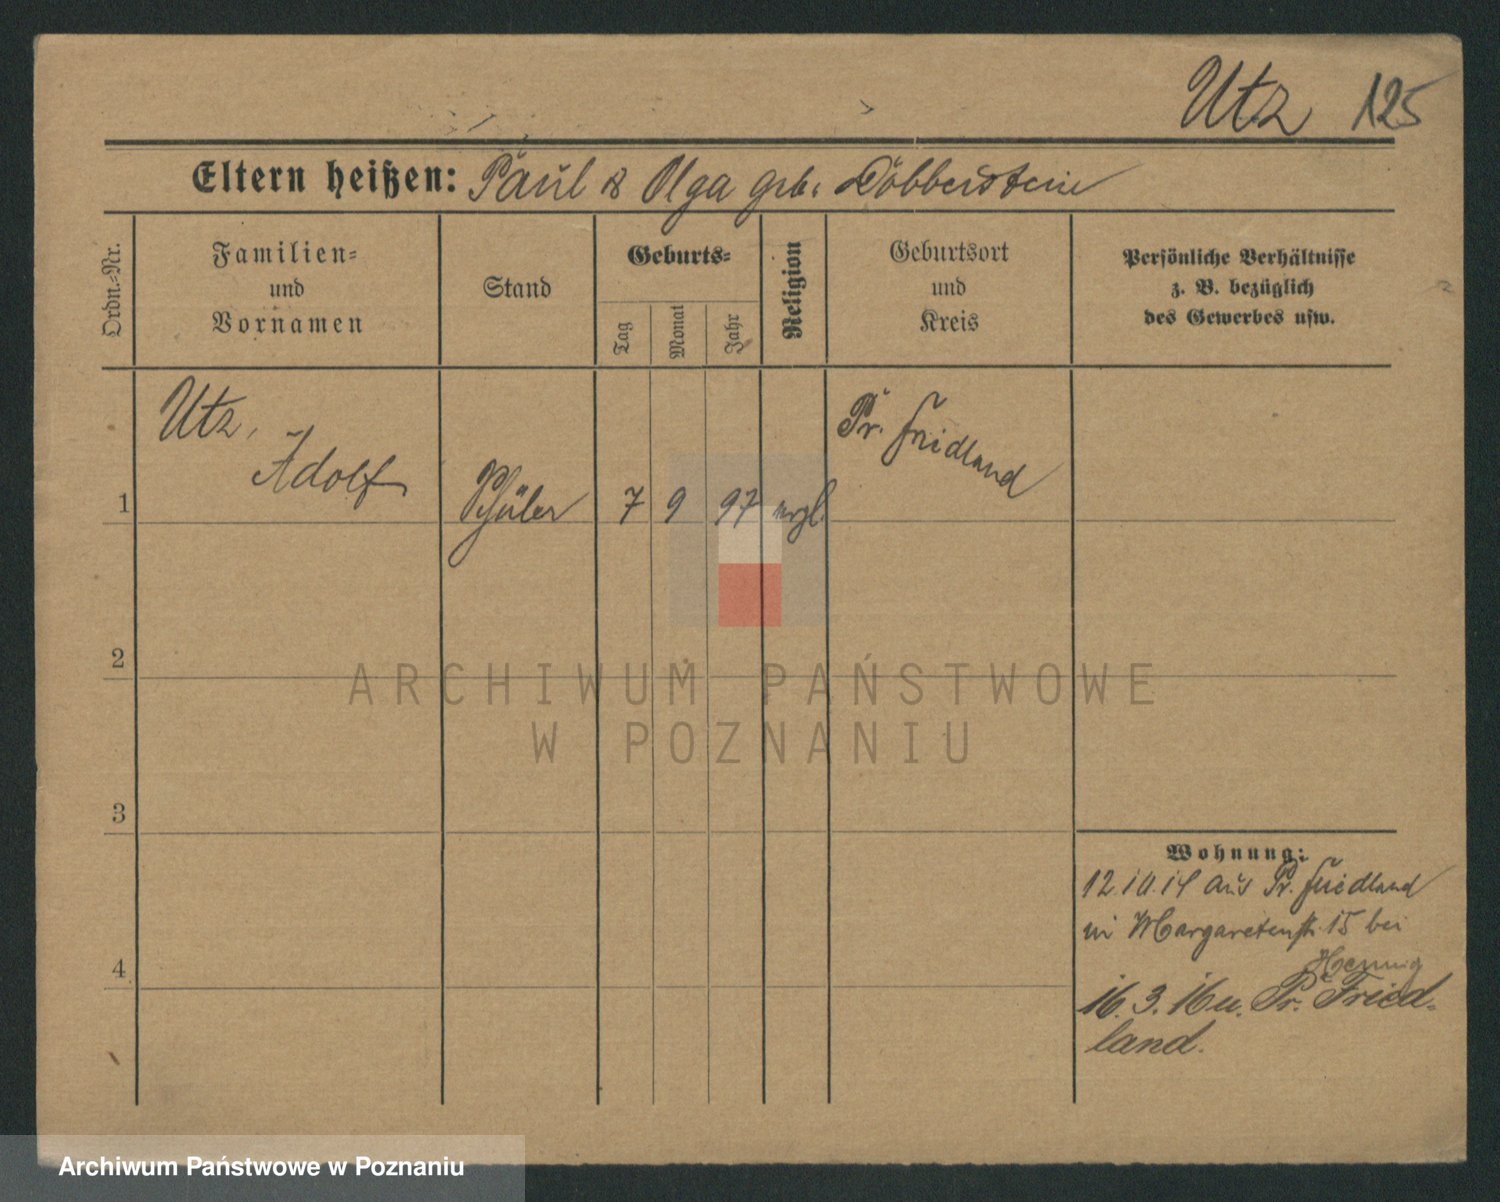 Utz 125
Eltern heißen: Paul & Olga geb. Döbberstein
Ordn.-Nr.
Familien- und Vornamen
Stand
Geburts-
Tag
Monat
Jahr
Religion
Geburtsort und Kreis
Persönliche Verhältnisse
z. B. bezüglich
des Gewerbes usw.
1
Utz,
Adolf
Schüler 7 9 97 evgl.
Pr. Friedland
2
ARCHIWUM PAŃSTWOWE
W POZNANIU
3
Wohnung:
12.10.14 aus Pr. Friedland
in Margaretenstr. 15 bei
Hennig
4
16. 3. 16 n. Pr. Fried-
land.
Archiwum Państwowe w Poznaniu